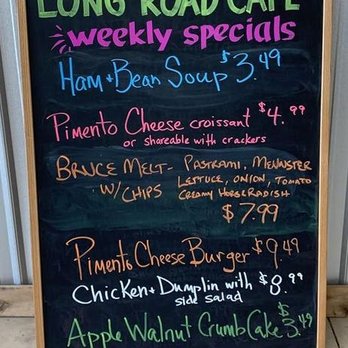 LONG ROAD CAFE
weekly specials
Ham + Bean Soup $3.49
Pimento Cheese croissant $4.99
or shareable with crackers
BRUCE MELT - PASTRAMI, MEUNSTER
W/ CHIPS LETTUCE, ONION, TOMATO
CREAMY HORSERADISH
$7.99
Pimento Cheese Burger $9.49
Chicken + Dumplin with $8.99
side salad
Apple Walnut Crumb Cake $3.49